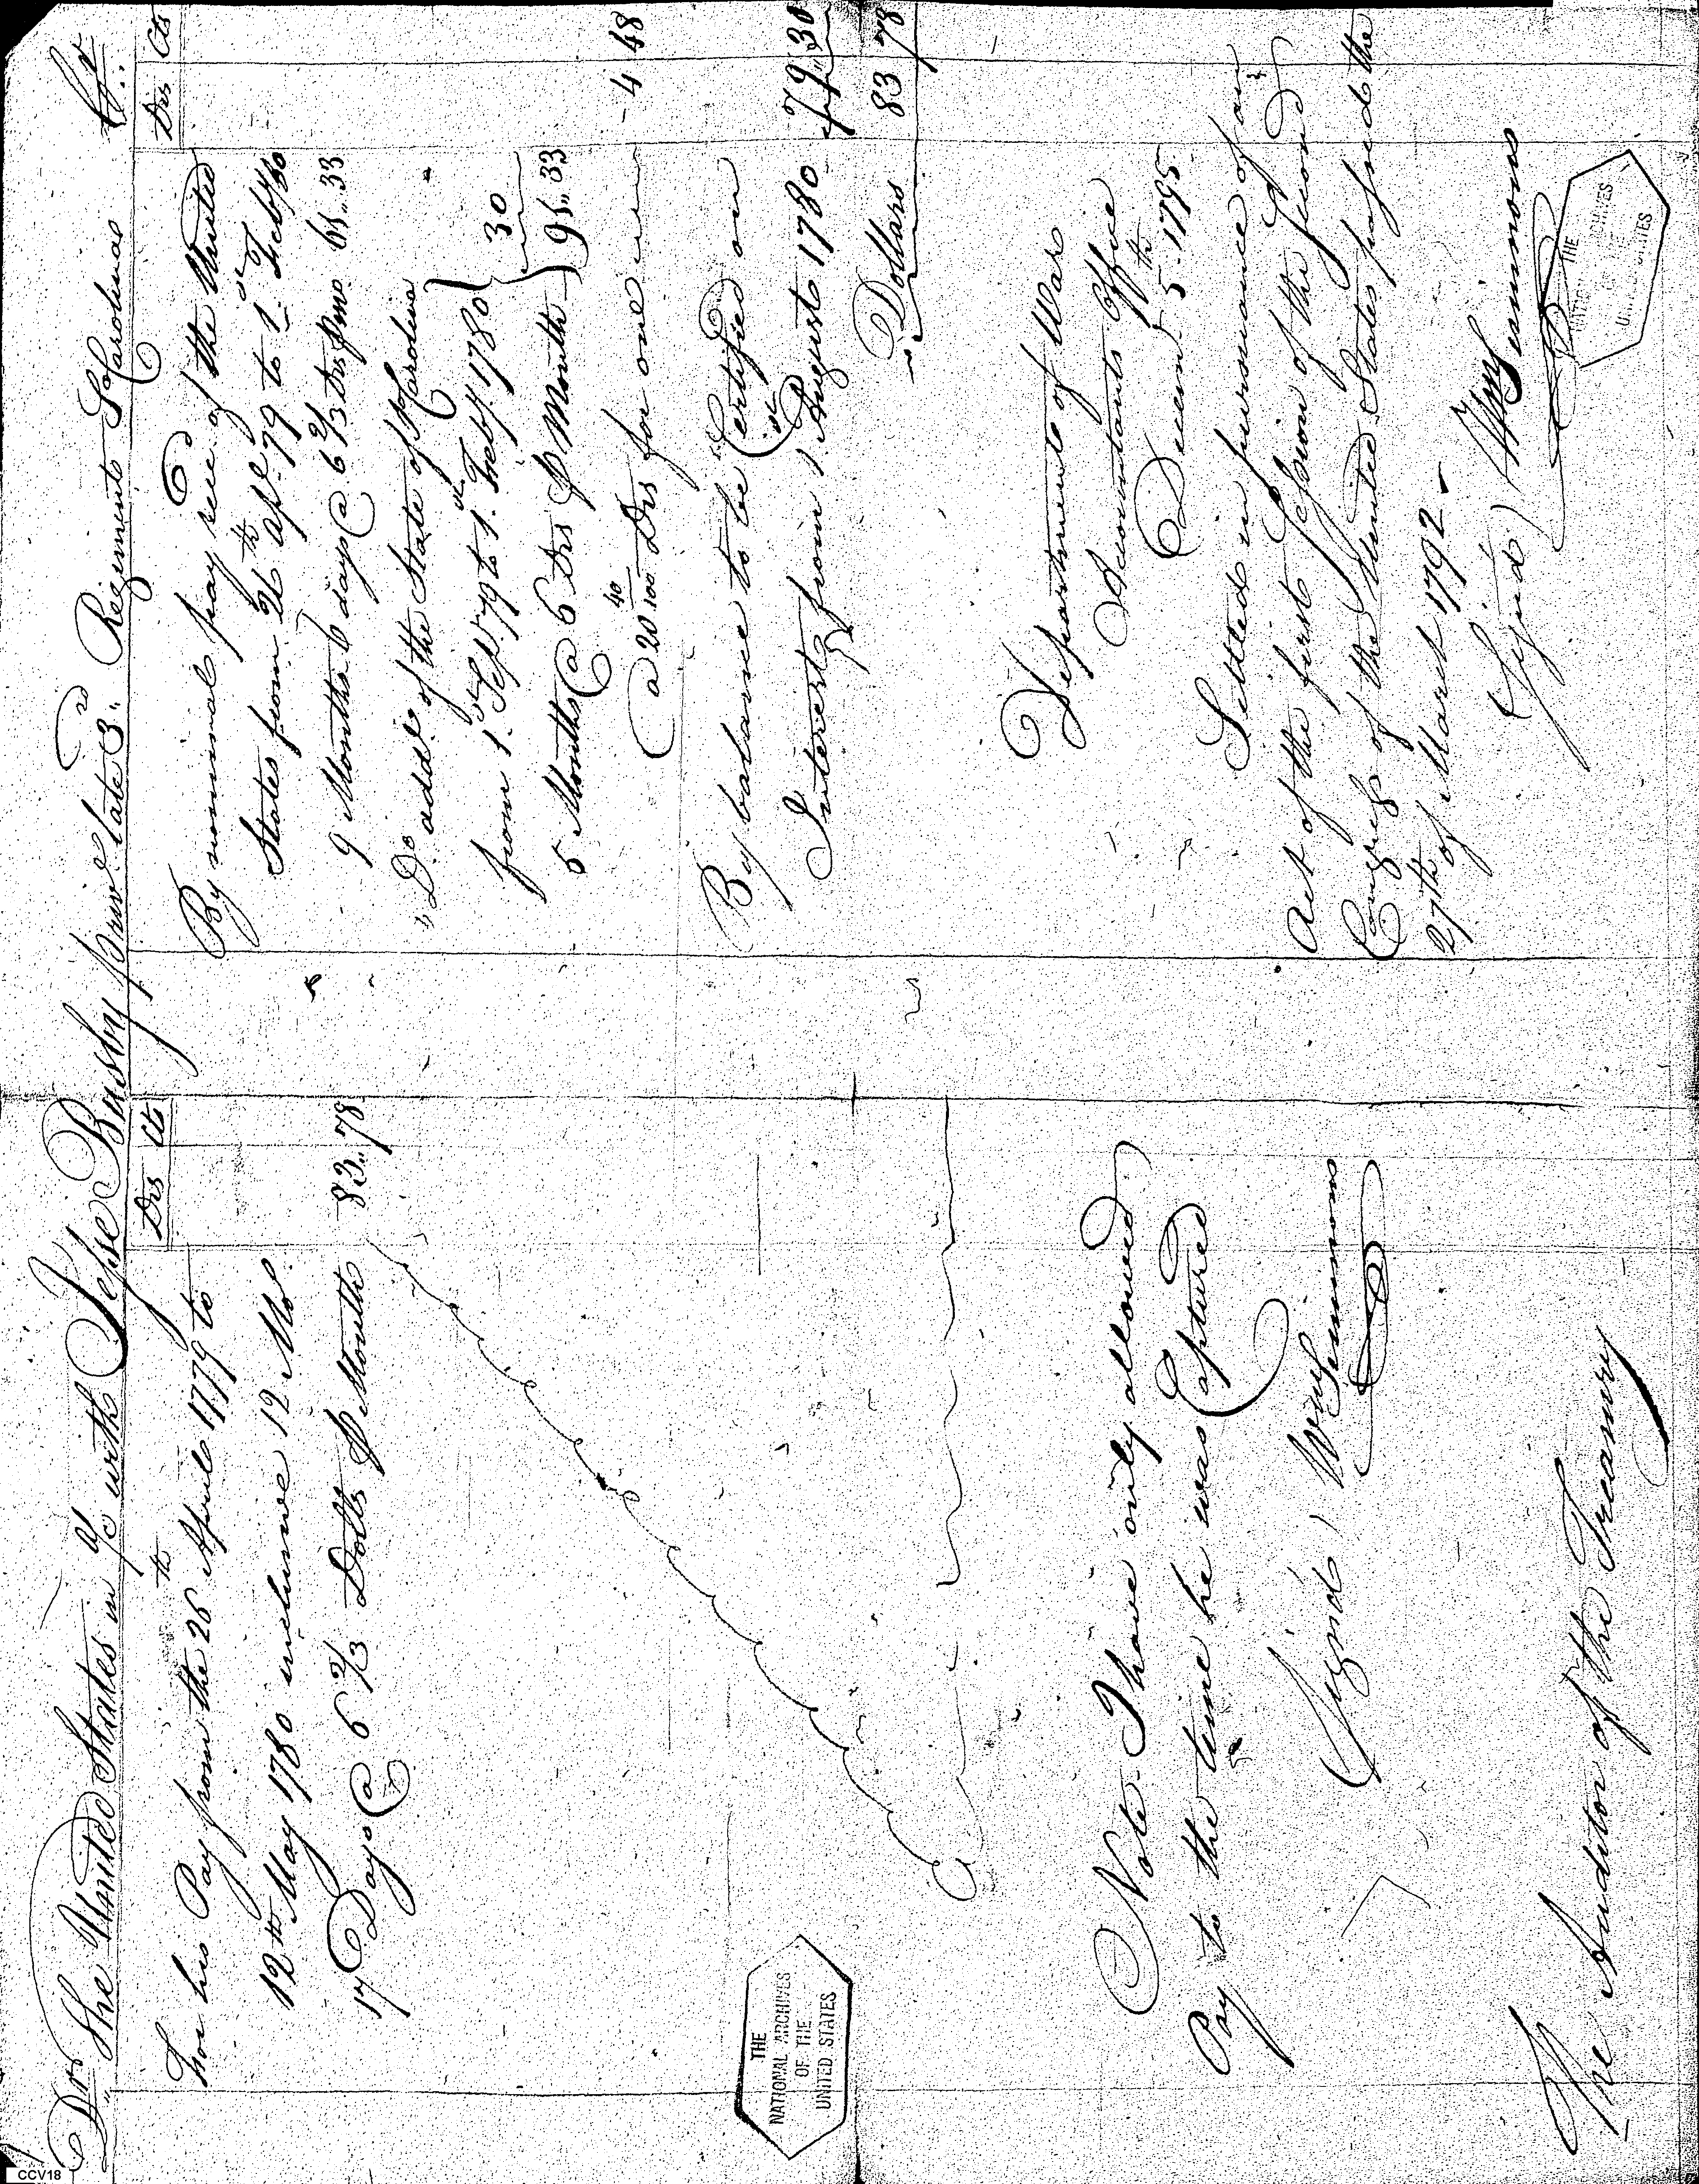 Dr. The United States in a/c with Jesse Busby priv.e late 3.rd Regiment So Carolina Cr.
Drs Cts
For his Pay from the 26th April 1779 to
12th May 1780 inclusive 12 Mos.
17 Days @ 6 2/3 Dolls P Month 83.. 78
Note. I have only allowed
Pay to the time he was Captured
Signd) Wm Simmons
The Auditor of the Treasury
Drs Cts
By nominal pay rec.d of the United
States from 26th Apl 79 to 1.st Feby 80
9 Months 6 days @ 6 2/3 Drs P mo 61.. 33
" Do add.l of the State of So Carolina
from 1.st Sept 79 to 1.st Feby. 1780
5 Months @ 6 Drs P Month 30
91.. 33
@ 20 40/100 Drs for one - 4 48
By balance to be Certified on
Interest from 1.st August 1780 79.. 30
Dollars 83 78
Department of War
Accountants Office
Decem.r 5th 1795.
Settled in pursuance of an
Act of the first Session of the second
Congress of the United States passed the
27th of March 1792 -
Signd) Wm Simmons
THE
NATIONAL ARCHIVES
OF THE
UNITED STATES
THE
CCV18